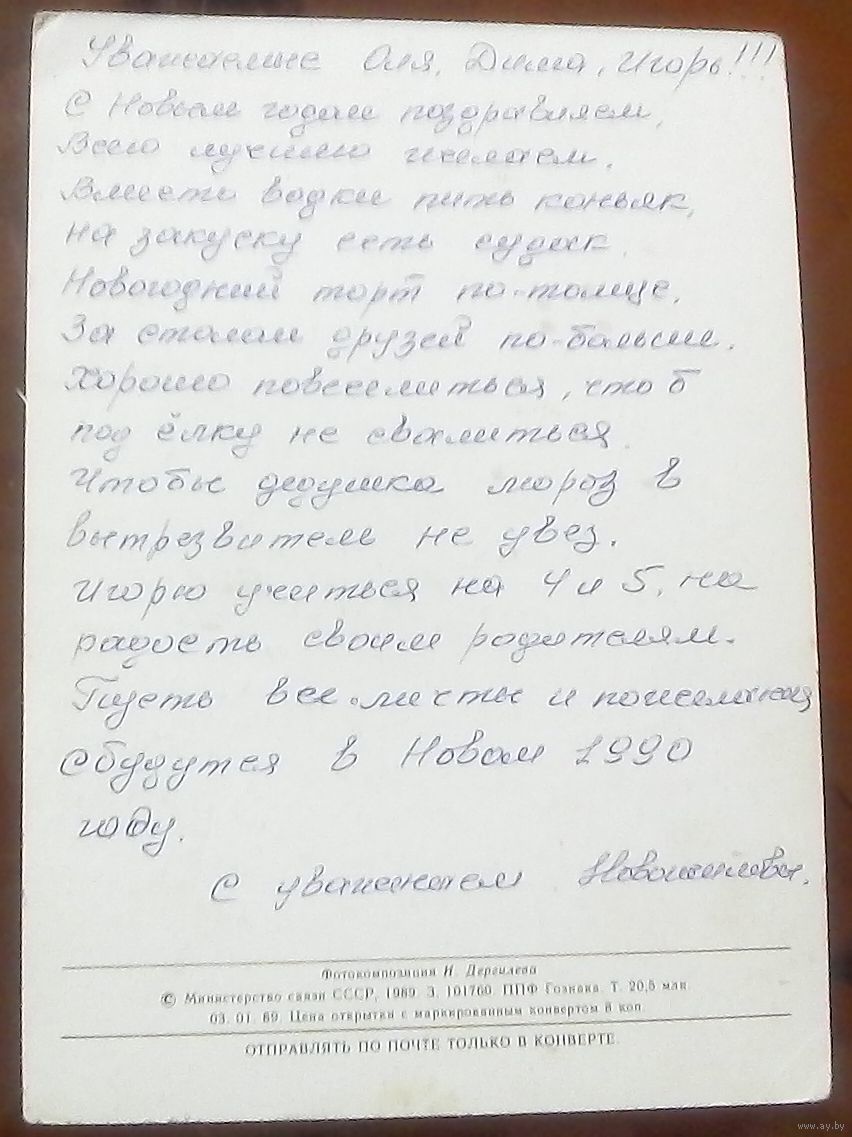 Уважаемые Оля, Дима, Игорь!!!
С Новым годом поздравляем,
Всего лучшего желаем.
Вместо водки пить коньяк,
на закуску есть судак.
Новогодний торт по-толще,
За столом друзей по-больше.
Хорошо повеселиться, что б
под ёлку не свалиться.
Чтобы дедушка мороз в
вытрезвитель не увез.
Игорю учиться на 4 и 5, на
радость своим родителям.
Пусть все мечты и пожелания
сбудутся в Новом 1990
году.
С уважением
Фотокомпозиция И. Дергилева
© Министерство связи СССР, 1989. З. 101760. ППФ Гознака. Т. 20,5 млн.
03. 01. 89. Цена открытки с маркированным конвертом 8 коп.
ОТПРАВЛЯТЬ ПО ПОЧТЕ ТОЛЬКО В КОНВЕРТЕ.
www.ay.by